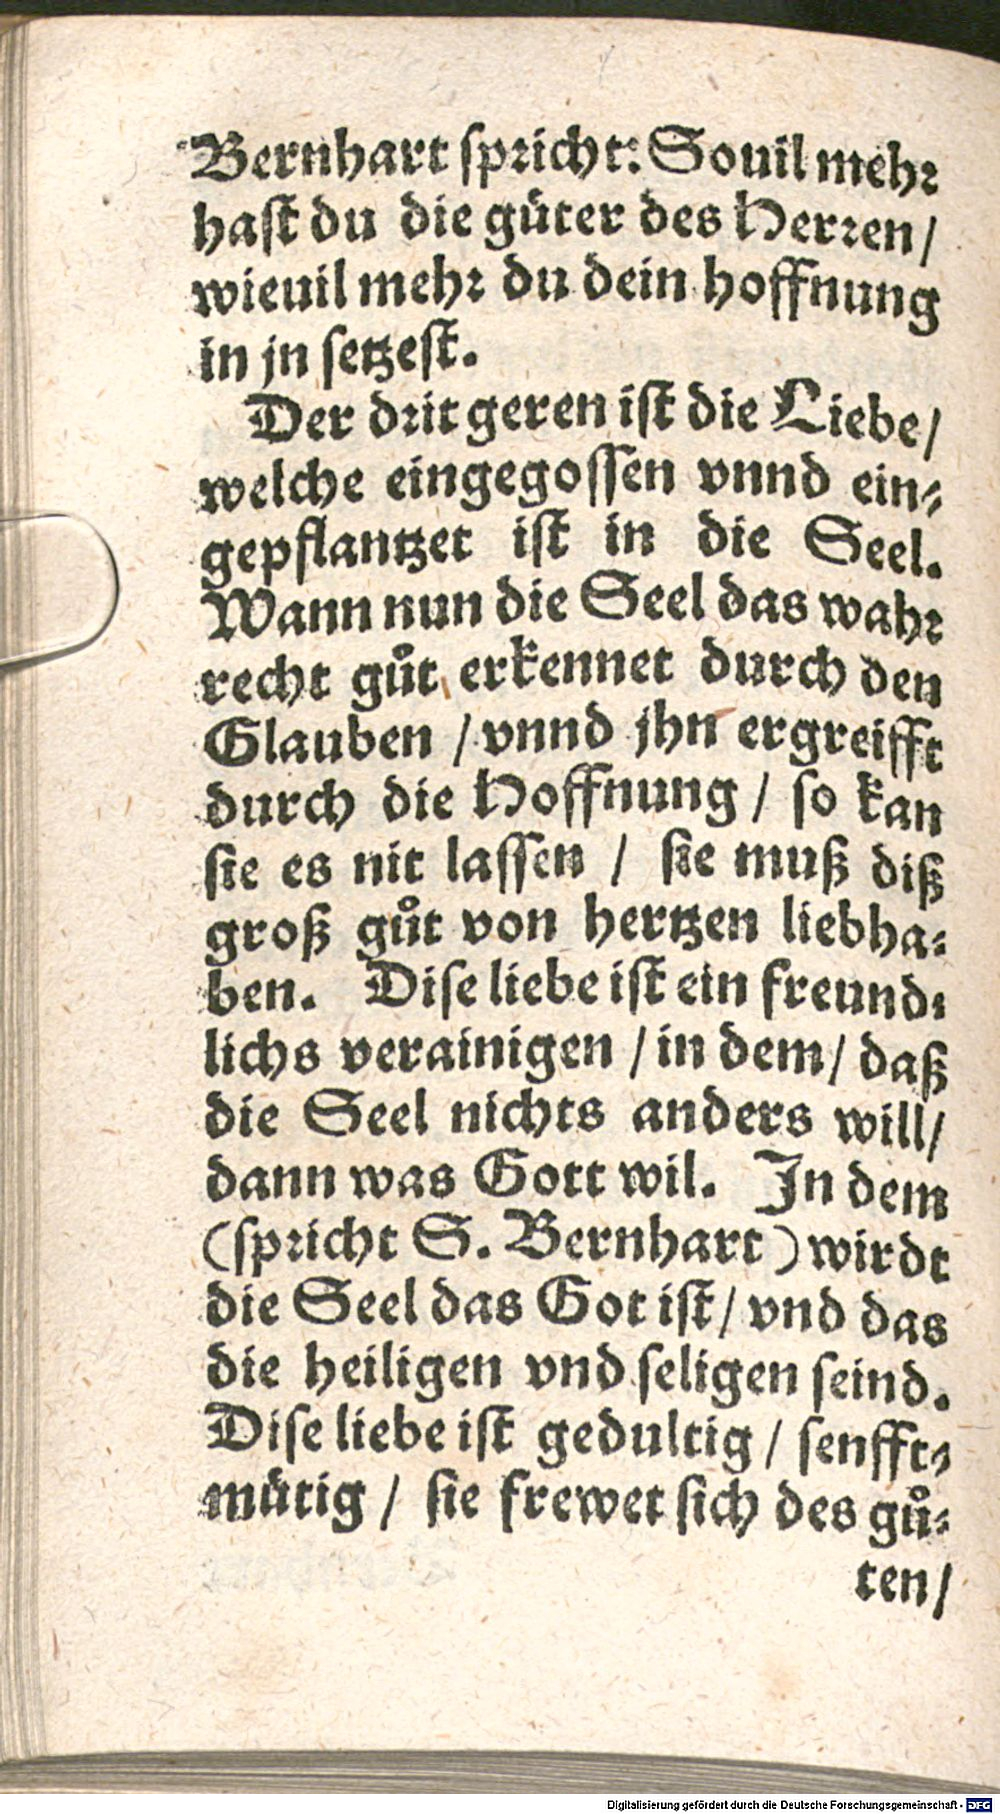 Bernhart spricht: Souil mehr
hast du die gůter des Herren/
wieuil mehr du dein hoffnung
in jn setzest.
Der drit geren ist die Liebe/
welche eingegossen vnnd ein-
gepflantzet ist in die Seel.
Wann nun die Seel das wahr
recht gůt erkennet durch den
Glauben / vnnd jhn ergreifft
durch die Hoffnung / so kan
sie es nit lassen / sie muß diß
groß gůt von hertzen liebha-
ben. Dise liebe ist ein freund-
lichs verainigen / in dem / daß
die Seel nichts anders will/
dann was Gott wil. In dem
(spricht S. Bernhart) wirdt
die Seel das Got ist / vnd das
die heiligen vnd seligen seind.
Dise liebe ist gedultig / senfft-
mütig / sie frewet sich des gů-
ten/
Digitalisierung gefördert durch die Deutsche Forschungsgemeinschaft - DFG